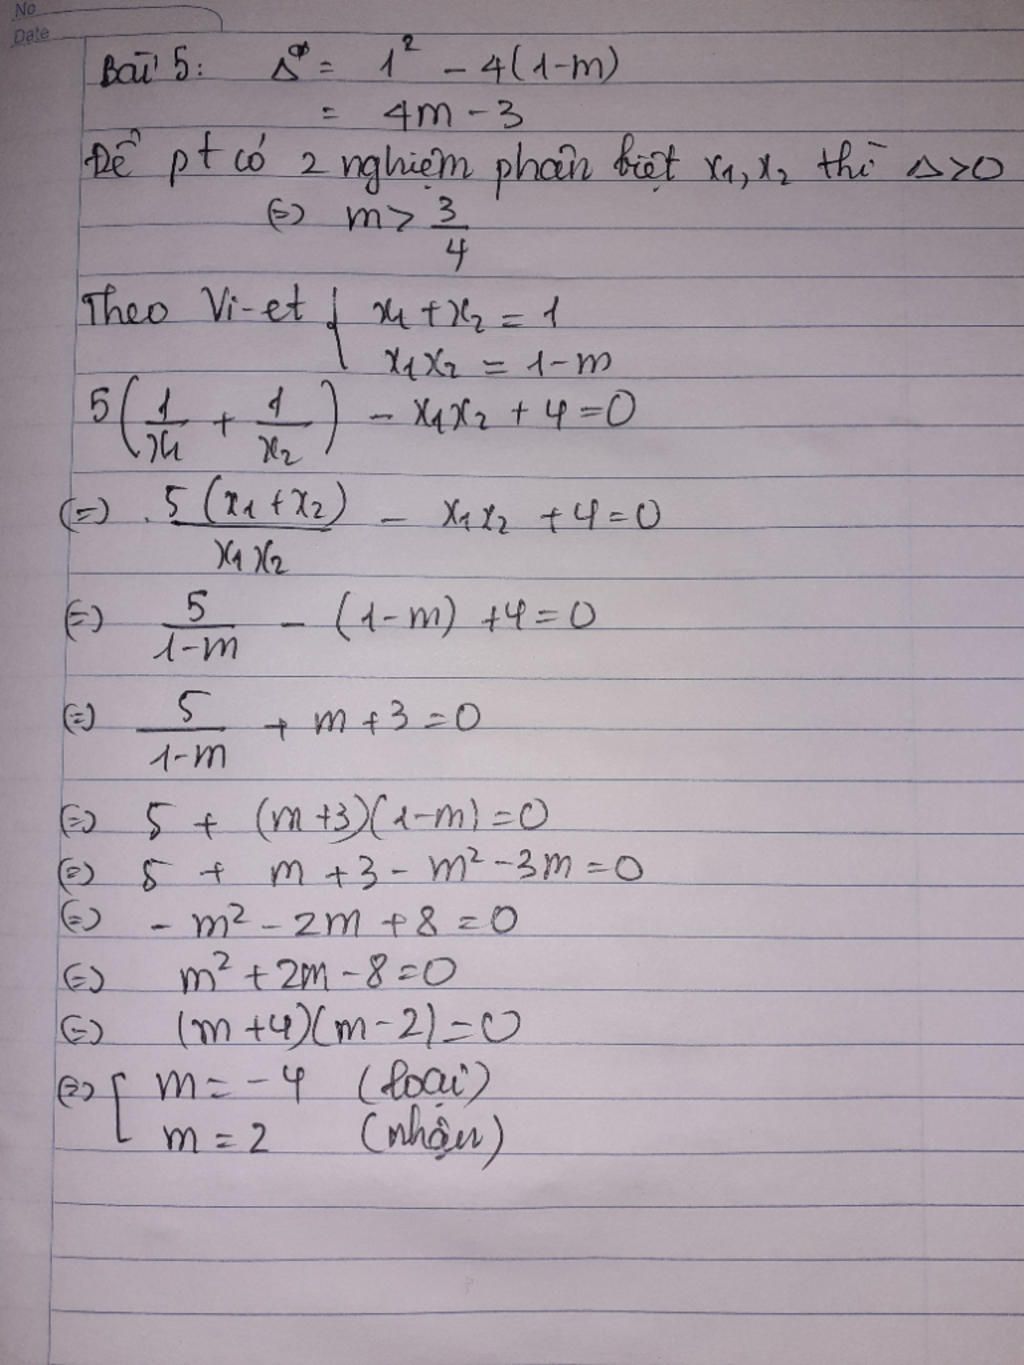 No
Date
Bài 5: Δ = 1² - 4(1-m)
= 4m - 3
Để pt có 2 nghiệm phân biệt x₁, x₂ thì Δ>0
(=) m > 3/4
Theo Vi-et { x₁ + x₂ = 1
x₁x₂ = 1-m
5(1/x₁ + 1/x₂) - x₁x₂ + 4 = 0
(=) 5(x₁+x₂)/x₁x₂ - x₁x₂ + 4 = 0
(=) 5/1-m - (1-m) + 4 = 0
(=) 5/1-m + m + 3 = 0
(=) 5 + (m+3)(1-m) = 0
(=) 5 + m + 3 - m² - 3m = 0
(=) - m² - 2m + 8 = 0
(=) m² + 2m - 8 = 0
(=) (m+4)(m-2) = 0
(=) [ m = -4 (loại)
m = 2 (nhận)